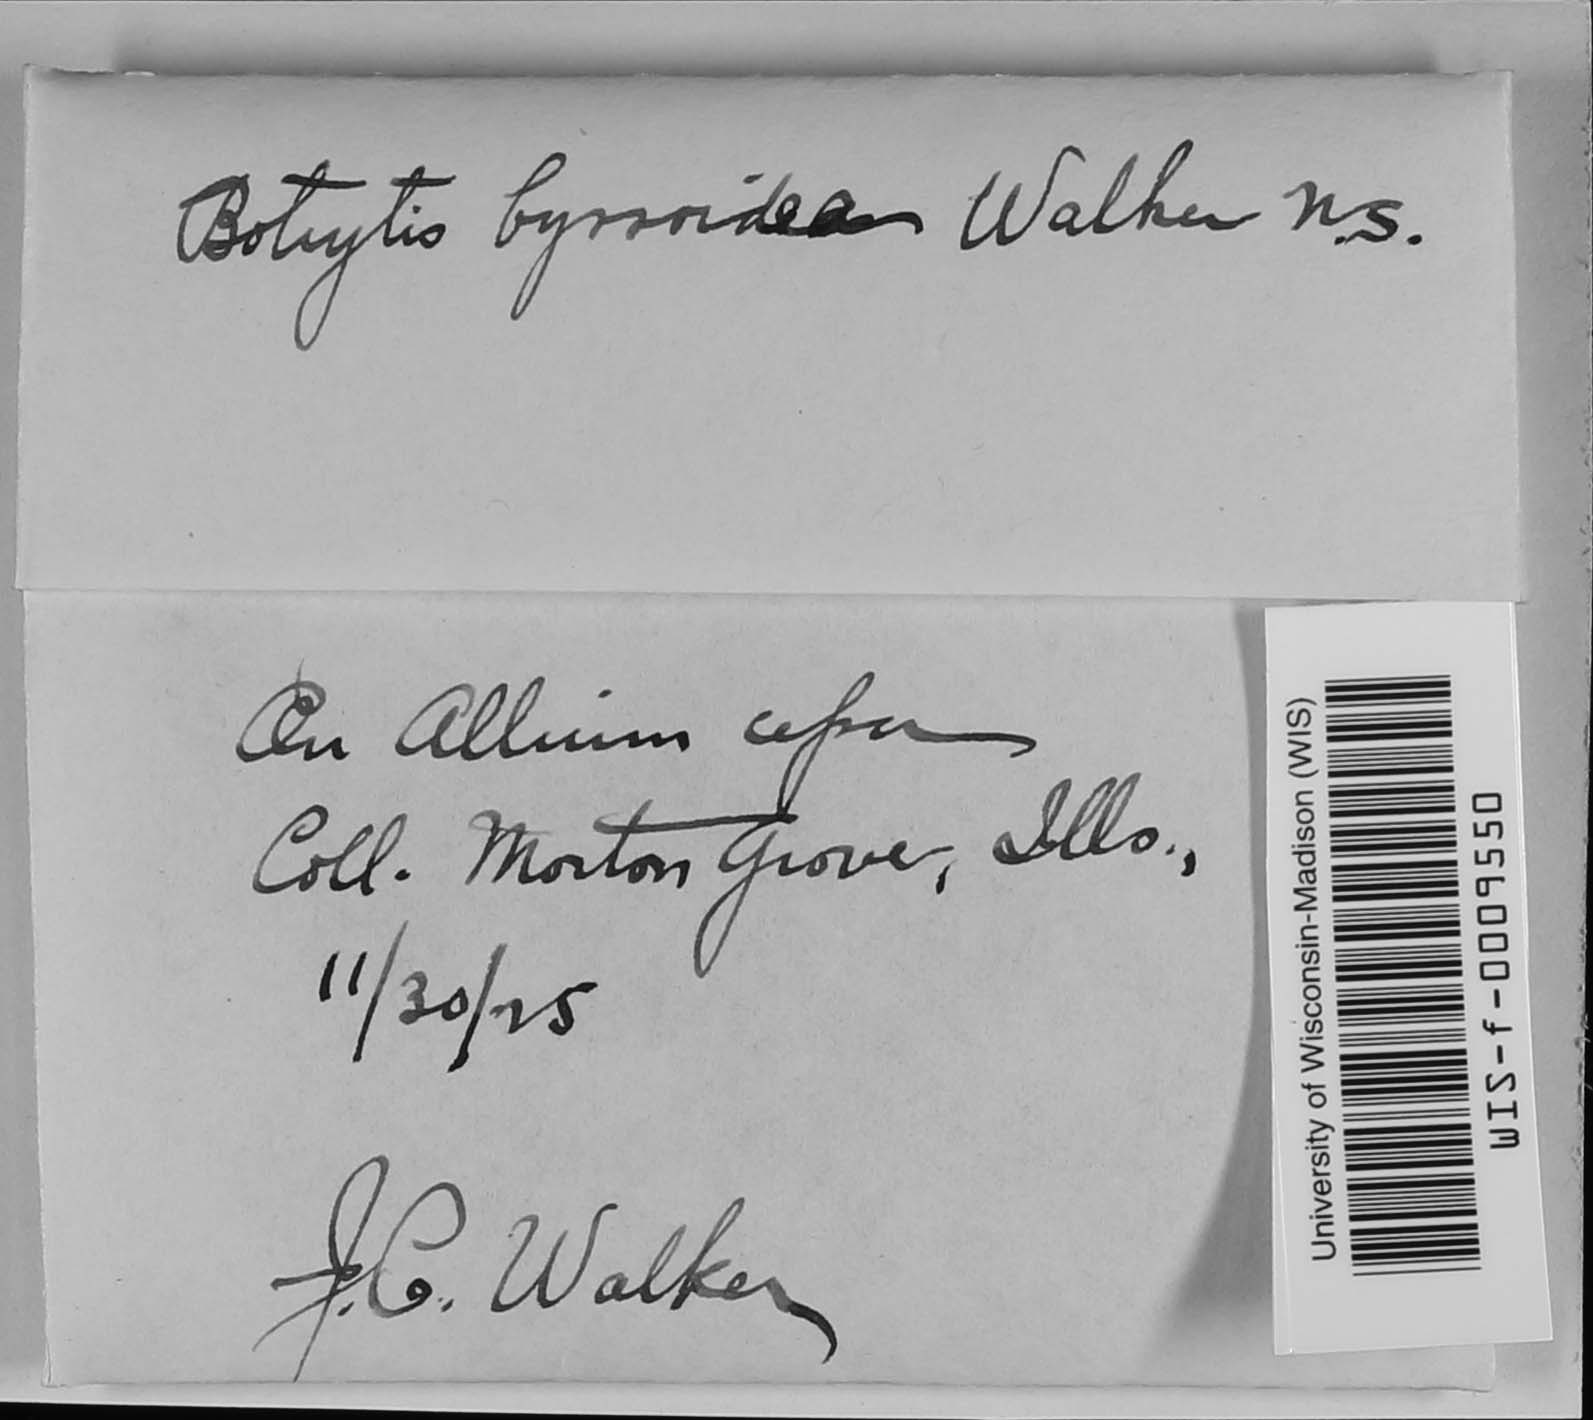 Botrytis byssoidea Walker n.s.
On Allium cepa
Coll. Morton Grove, Ills.,
11/30/25
J.C. Walker
University of Wisconsin-Madison (WIS)
WIS-f-0009550